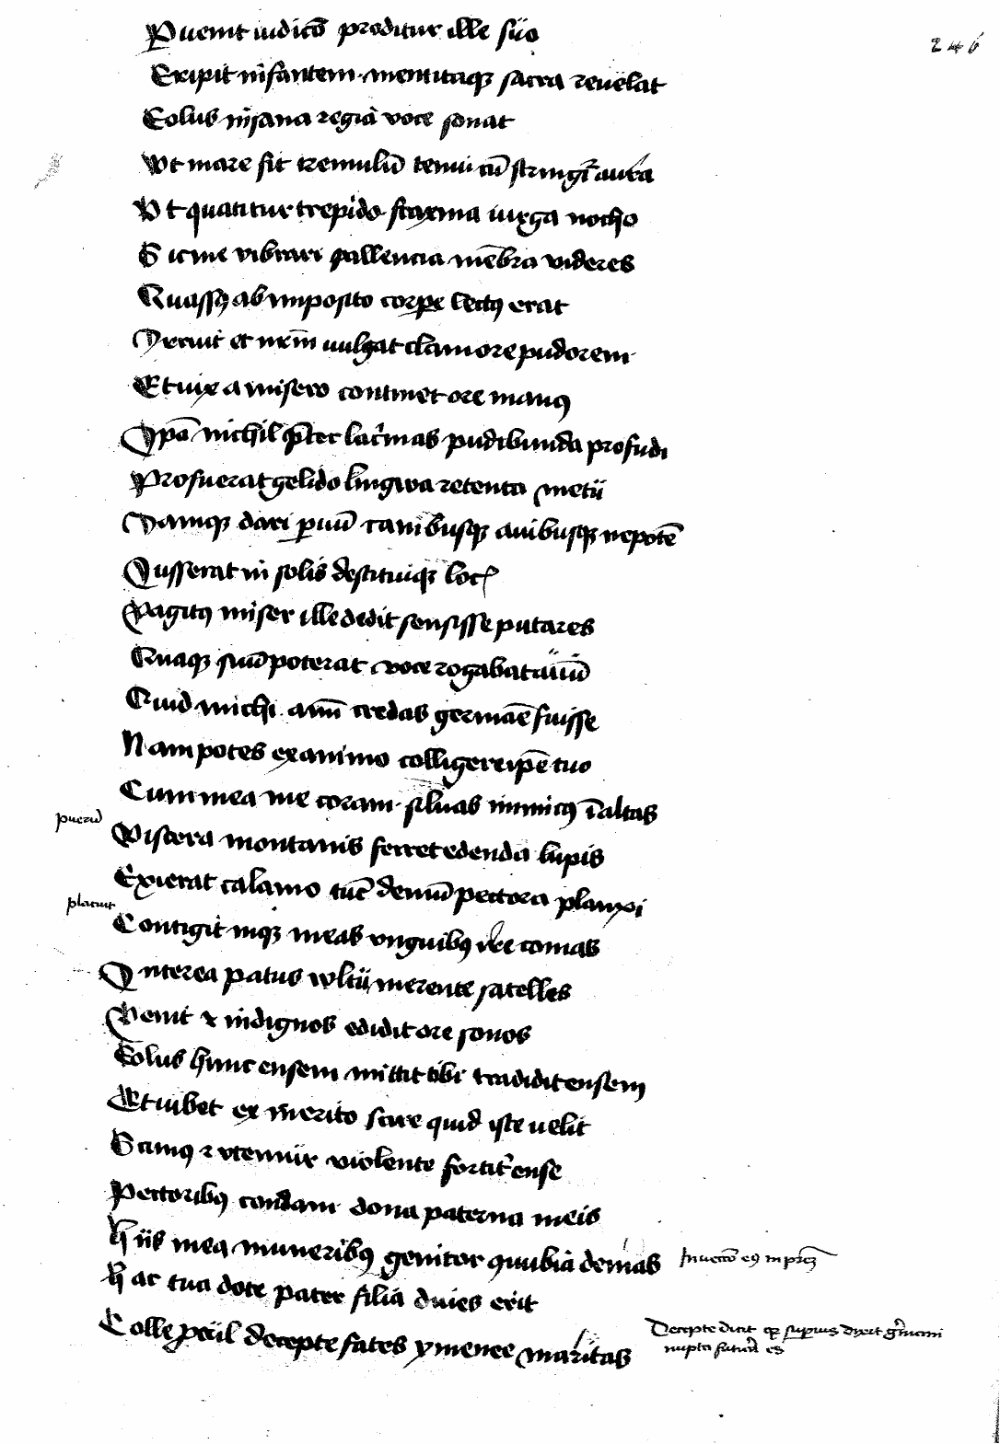 246
Puenit iudicō proditur ille suo
Eripit infantem mentitaqꝫ sacra reuelat
Eolus insana regia voce sonat
Ut mare fit tremulū tenui cū stringit᷑ aura
Ut quatitur trepido fraxina uirga notho
Sic me vibrari pallencia mēbra videres
Quassꝰ ab imposito corpe lectꝰ erat
Irruit et nr̄m uulgat clamore pudorem
Et uix a misero continet ore manꝰ
Ipā nichil p̄ter lac̄mas pudibunda profudi
Prosuerat gelido lingwa retenta metu
Iamqꝫ dari puū canibusqꝫ auibusqꝫ nepotē
Iusserat in solis destituiqꝫ loc
Vagitꝰ miser ille dedit sensisse putares
Quaqꝫ suū poterat voce rogabat auū
Quid michi anī credas germāe fuisse
Nam potes ex animo colligere ip̄e tuo
Cum mea me coram siluas inimicꝰ ī altas
puerū
Viscera montanis ferret edenda lupis
Exierat calamo tūc demū pectora planxi
placuit
Contigit inqꝫ meas vnguibꝰ ire comas
Interea patrius wltu merente satelles
Venit & indignos edidit ore sonos
Eolus hunc ensem mittit tibi tradidit ensem
Et iubet ex merito scire quid iste uelit
Scimꝰ & vtemur violente fortit᷑ ense
Pectoribꝰ condam dona paterna meis
Hiis mea muneribꝰ genitor cōnubia demas
Inuectō eꝰ in prēꝫ
Hac tua dote pater filia diues erit
Tolle pcul decepte faces ymenee maritas
Decepte dicit qꝫ superius dixit
nupta